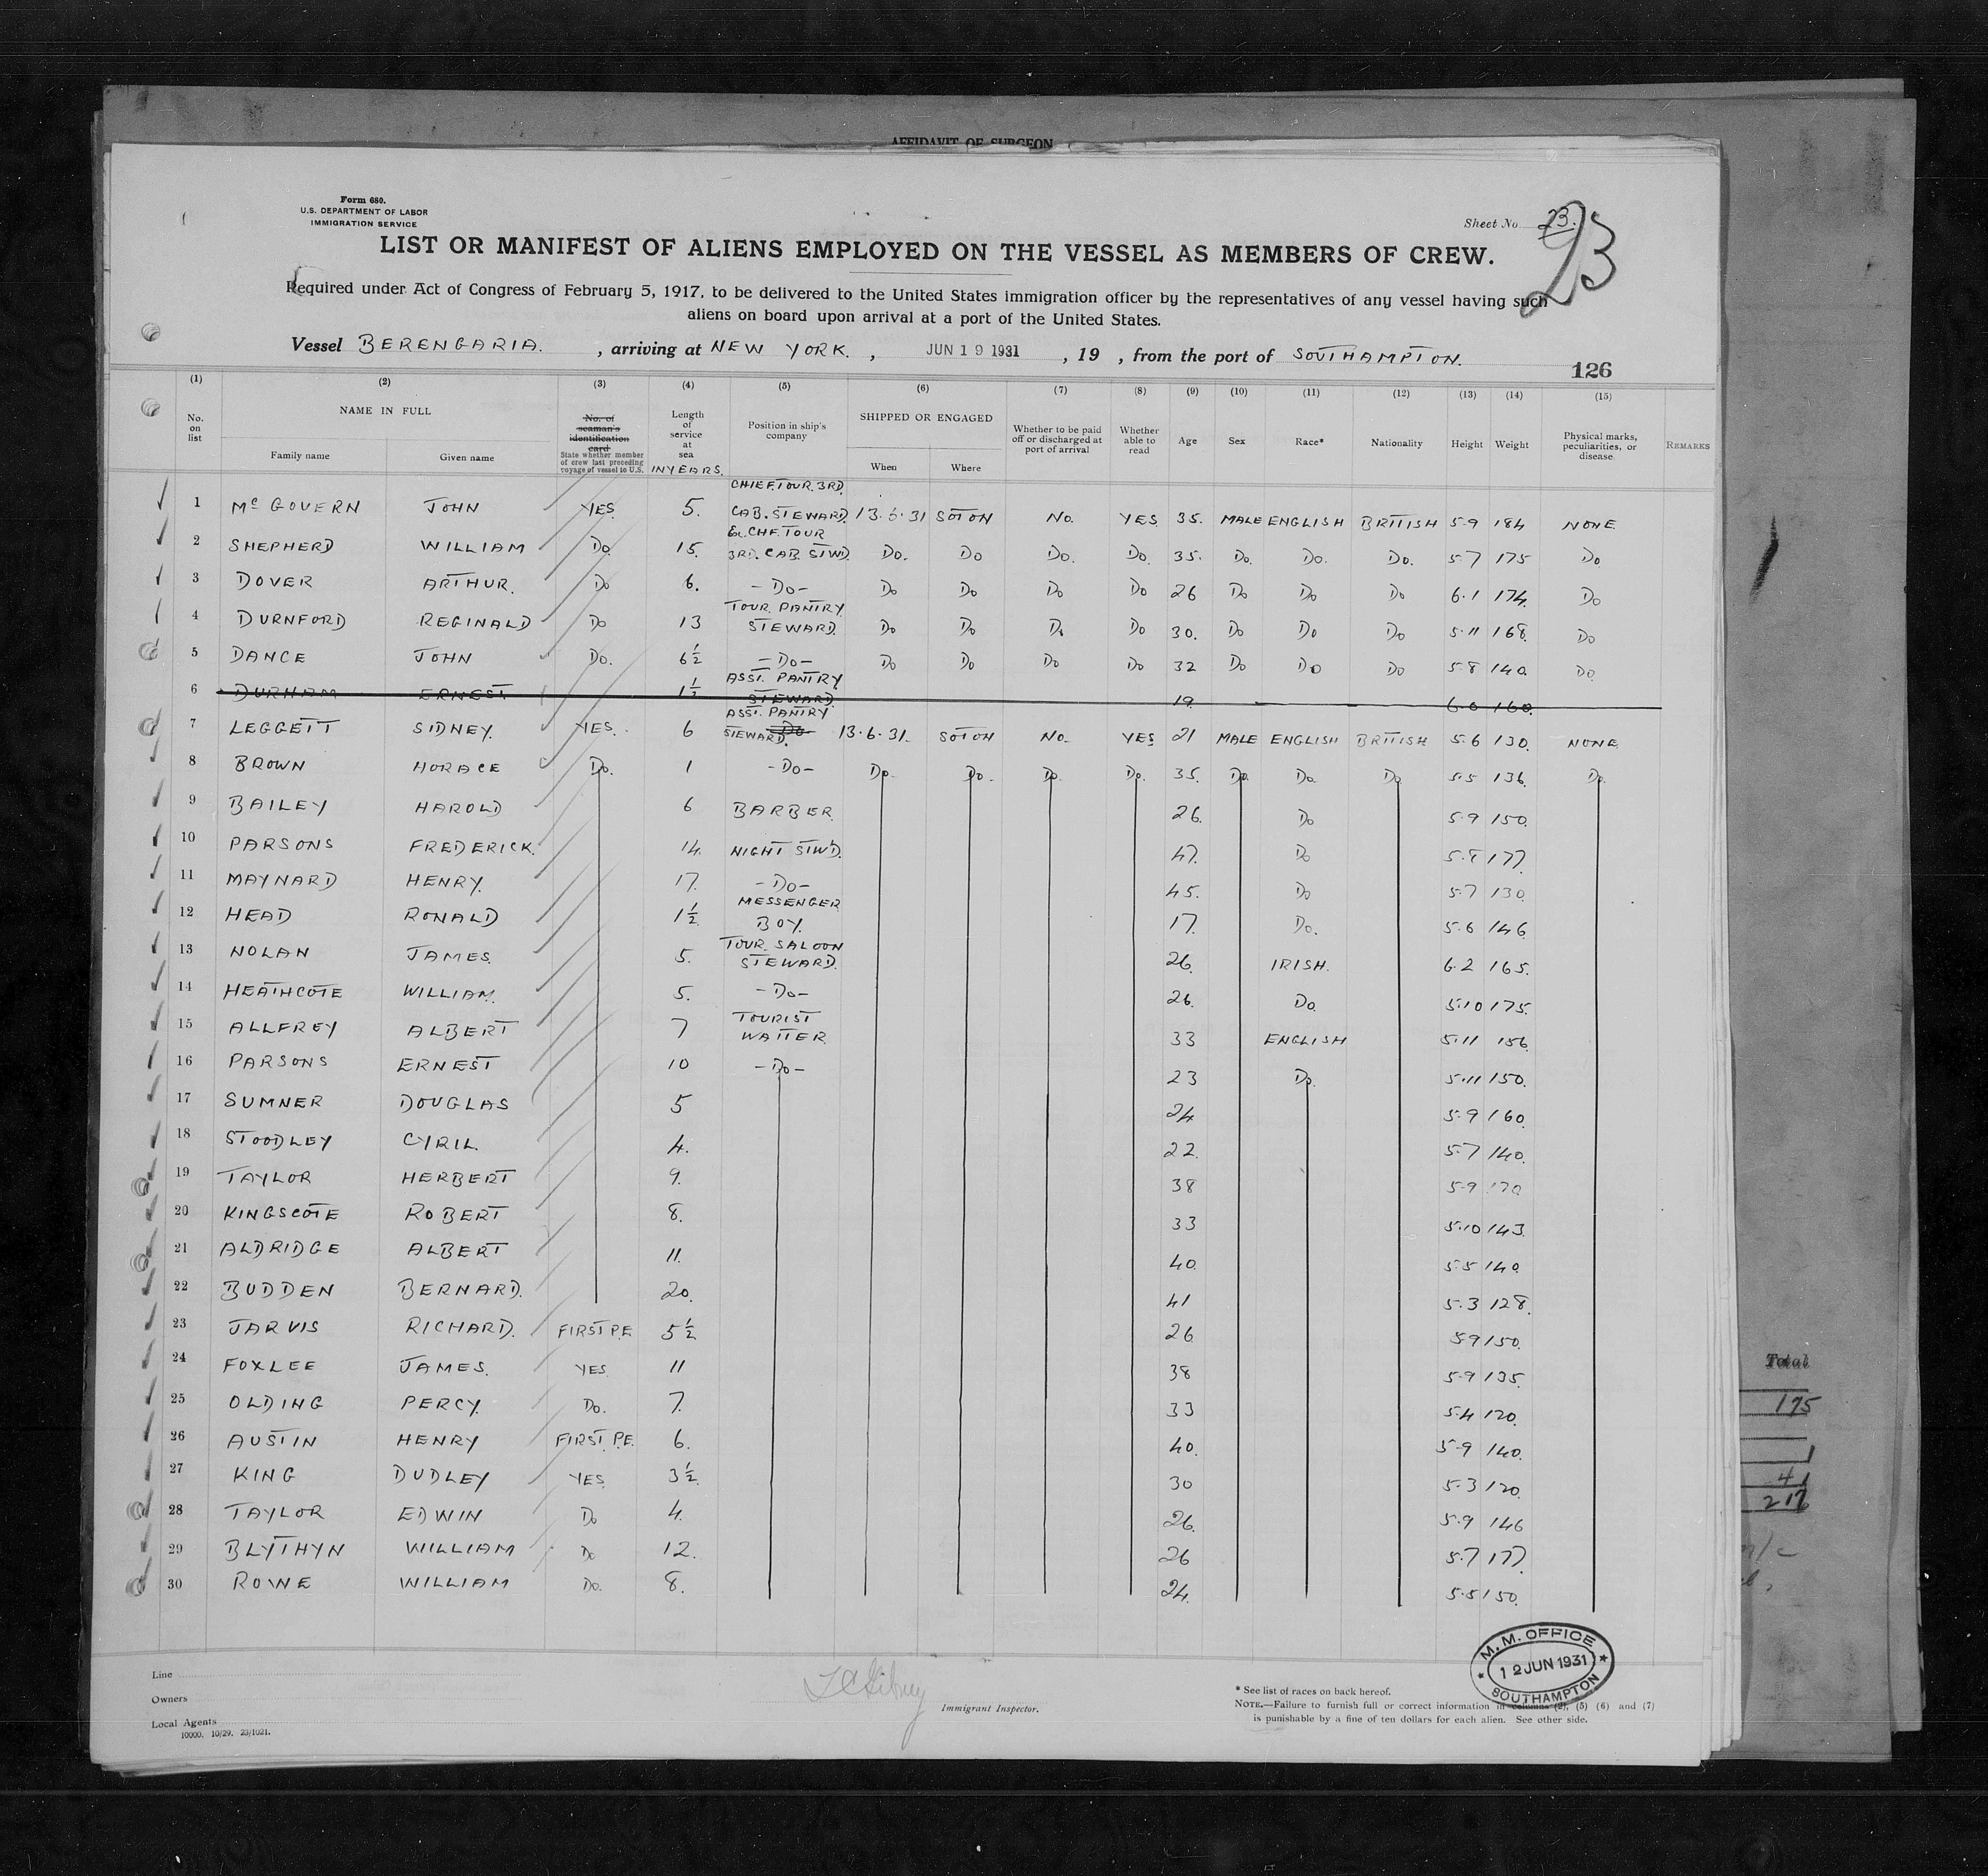 AFFIDAVIT OF SURGEON
Form 680.
U.S. DEPARTMENT OF LABOR
IMMIGRATION SERVICE
Sheet No 23.
23
LIST OR MANIFEST OF ALIENS EMPLOYED ON THE VESSEL AS MEMBERS OF CREW.
Required under Act of Congress of February 5, 1917, to be delivered to the United States immigration officer by the representatives of any vessel having such
aliens on board upon arrival at a port of the United States.
Vessel BERENGARIA. , arriving at NEW YORK. , JUN 19 1931 , 19 , from the port of SOUTHAMPTON.
126
(1) (2) (3) (4) (5) (6) (7) (8) (9) (10) (11) (12) (13) (14) (15)
No. on list NAME IN FULL Family name Given name No. of seaman's identification card State whether member of crew last preceding voyage of vessel to U.S. Length of service at sea IN YEARS. Position in ship's company SHIPPED OR ENGAGED When Where Whether to be paid off or discharged at port of arrival Whether able to read Age Sex Race* Nationality Height Weight Physical marks, peculiarities, or disease REMARKS
1 McGOVERN JOHN YES 5. CHIEF.TOUR.3RD. CAB.STEWARD. 13.6.31 SOTON NO. YES 35. MALE ENGLISH BRITISH 5.9 184 NONE
2 SHEPHERD WILLIAM DO. 15. CHF.TOUR 3RD. CAB. STWD. DO. DO DO. DO. 35. DO. DO. DO. 5.7 175 DO
3 DOVER ARTHUR. DO 6. -DO- DO DO DO DO 26 DO DO DO 6.1 174. DO
4 DURNFORD REGINALD DO 13 TOUR. PANTRY STEWARD. DO DO DO DO 30. DO DO DO 5.11 168. DO
5 DANCE JOHN DO. 6½ -DO- DO DO DO DO 32 DO DO DO 5.8 140. DO
6 DURHAM ERNEST. 1½ ASST. PANTRY STEWARD 19. 6.0 160.
7 LEGGETT SIDNEY. YES. 6 ASST. PANTRY STEWARD. DO 13.6.31. SOTON NO. YES 21 MALE ENGLISH BRITISH 5.6 130. NONE
8 BROWN HORACE DO. 1 -DO- DO. DO. DO. DO. 35. DO. DO. DO 5.5 136. DO.
9 BAILEY HAROLD 6 BARBER. 26. DO 5.9 150.
10 PARSONS FREDERICK. 14. NIGHT STW'D. 47. DO 5.8 177.
11 MAYNARD HENRY. 17. -DO- 45. DO 5.7 130.
12 HEAD RONALD 1½ MESSENGER BOY. 17. DO. 5.6 146
13 NOLAN JAMES. 5. TOUR. SALOON STEWARD. 26. IRISH. 6.2 165.
14 HEATHCOTE WILLIAM. 5. -DO- 26. DO. 5.10 175.
15 ALLFREY ALBERT 7 TOURIST WAITER. 33 ENGLISH 5.11 156.
16 PARSONS ERNEST 10 -DO- 23 DO. 5.11 150.
17 SUMNER DOUGLAS 5 24 5.9 160.
18 STOODLEY CYRIL. 4. 22. 5.7 140.
19 TAYLOR HERBERT 9. 38 5.9 170
20 KINGSCOTE ROBERT 8. 33 5.10 143.
21 ALDRIDGE ALBERT 11. 40. 5.5 140.
22 BUDDEN BERNARD. 20. 41 5.3 128.
23 JARVIS RICHARD. FIRST P.E 5½ 26 5.9 150.
24 FOXLEE JAMES. YES. 11 38 5.9 135.
25 OLDING PERCY. DO. 7. 33 5.4 120.
26 AUSTIN HENRY FIRST. P.E. 6. 40. 5.9 140.
27 KING DUDLEY YES. 3½ 30 5.3 120.
28 TAYLOR EDWIN DO 4. 26. 5.9 146
29 BLYTHYN WILLIAM DO 12. 26 5.7 177.
30 ROWE WILLIAM DO. 8. 24. 5.5 150.
Total
175
41
Line
Owners
Local Agents
10000. 10/29. 23/1021.
Immigrant Inspector.
* See list of races on back hereof.
NOTE.—Failure to furnish full or correct information in columns (2), (5) (6) and (7)
is punishable by a fine of ten dollars for each alien. See other side.
M. M. OFFICE
12 JUN 1931
SOUTHAMPTON